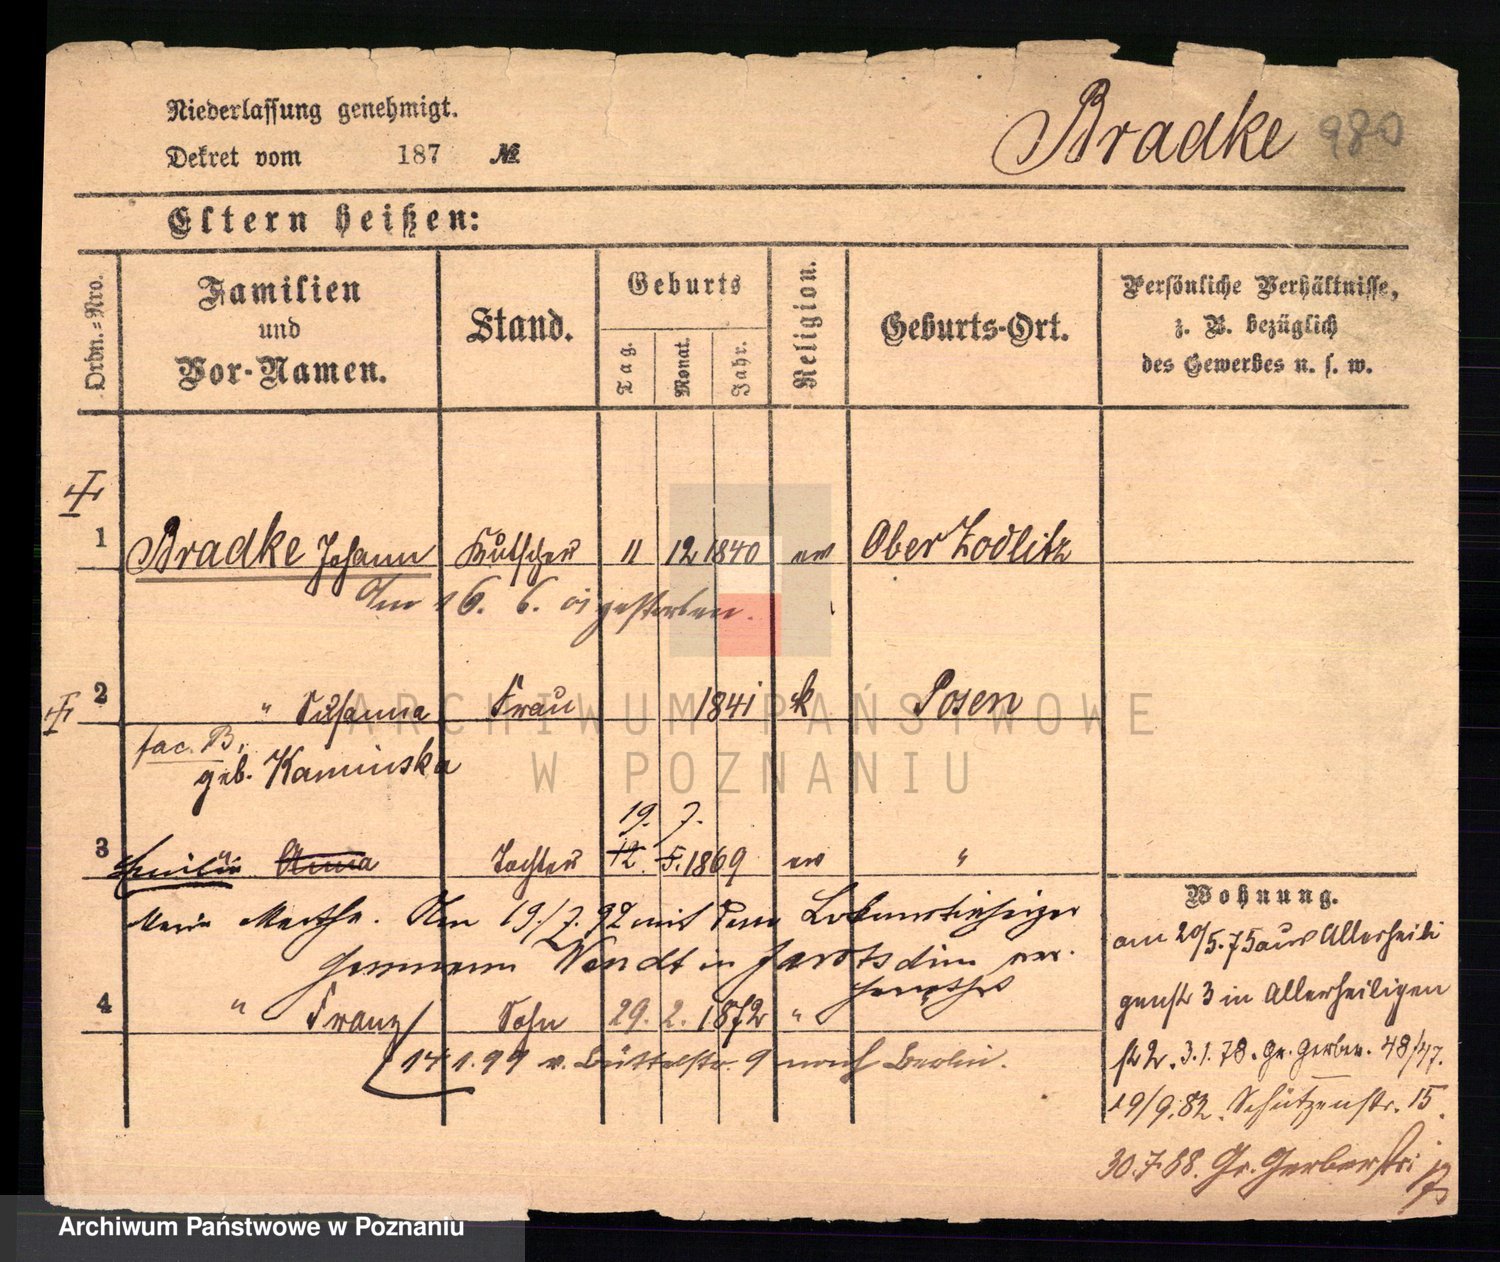 Niederlassung genehmigt.
Dekret vom 187 №
Bradke 980
Eltern heißen:
Ordn.=Nro.
Familien und Vor-Namen.
Stand.
Geburts
Tag.
Monat.
Jahr.
Religion.
Geburts-Ort.
Persönliche Verhältnisse,
z. B. bezüglich
des Gewerbes u. s. w.
1 Bradke Johann Kutscher 11 12 1840 ev Ober Zodlitz
Am 16. 6. 01 gestorben.
2 " Susanna Frau 1841 k Posen
fac. B.
geb. Kaminska
19. 7.
3 Emilie Anna Tochter 12. 5. 1869 ev "
Marie Martha. Am 19/7. 92 mit dem Lokomotivheizer
Hermann Wendt in Jarotschin ver.
heirathet
4 " Franz Sohn 29. 2. 1872 "
14 1. 99 v. Büttelstr. 9 nach Berlin.
Wohnung.
am 20/5. 75 aus Allerheili
genstr 3 in Allerheiligen
str 2. 3.1.78. Gr. Gerber. 48/47.
19/9.82. Schützenstr. 15.
30.7.88. Gr. Gerberstr:
ARCHIWUM PAŃSTWOWE
W POZNANIU
Archiwum Państwowe w Poznaniu